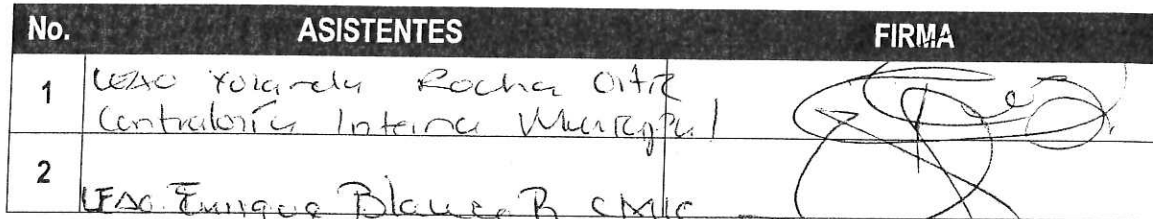 No. ASISTENTES FIRMA
1 Yolanda Rocha Ortiz
Contraloría Interna Municipal
2 Enrique Blanco R CMIC